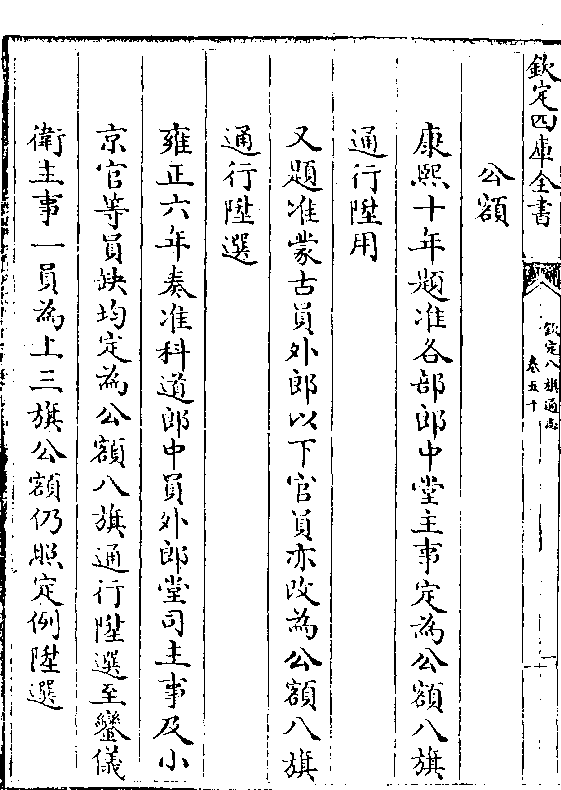 欽定四庫全書
欽定八旗通志
卷五十
一
公額
康熙十年題准各部郎中堂主事定為公額八旗
通行陞用
又題准蒙古員外郎以下官員亦改為公額八旗
通行陞選
雍正六年奏准科道郎中員外郎堂司主事及小
京官等員缺均定為公額八旗通行陞選至鑾儀
衛主事一員為上三旗公額仍照定例陞選